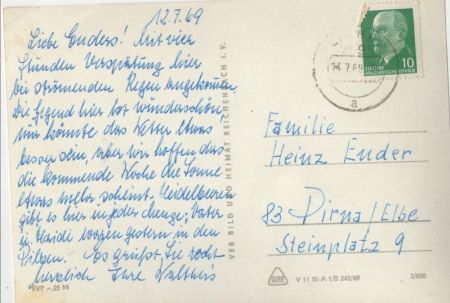 12.7.69
Liebe Enders! Mit vier
Stunden Verspätung hier
bei strömenden Regen angekommen
die Gegend hier ist wunderschön,
nur könnte das Wetter etwas
besser sein aber wir hoffen das
die kommende Woche die Sonne
etwas mehr scheint. Heidelbeeren
gibt es hier in jeder Menge, Vater
u. Heidi waren gestern in den
Pilzen. Es grüßt Sie recht
herzlich Ihre
EVP -,25 M
VEB BILD UND HEIMAT REICHENBACH I. V.
14.7.69
a
DEUTSCHE
DEMOKRATISCHE REPUBLIK
10
Familie
Heinz Ender
83 Pirna/Elbe
Steinplatz 9
V 11 50 A 1/B 242/69
3/600